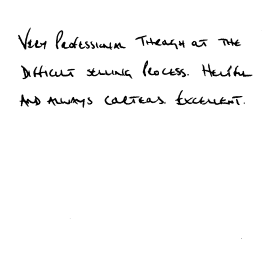 Very Professional Through at the
Difficult selling Process. Helpful
and always Carteous. Excellent.